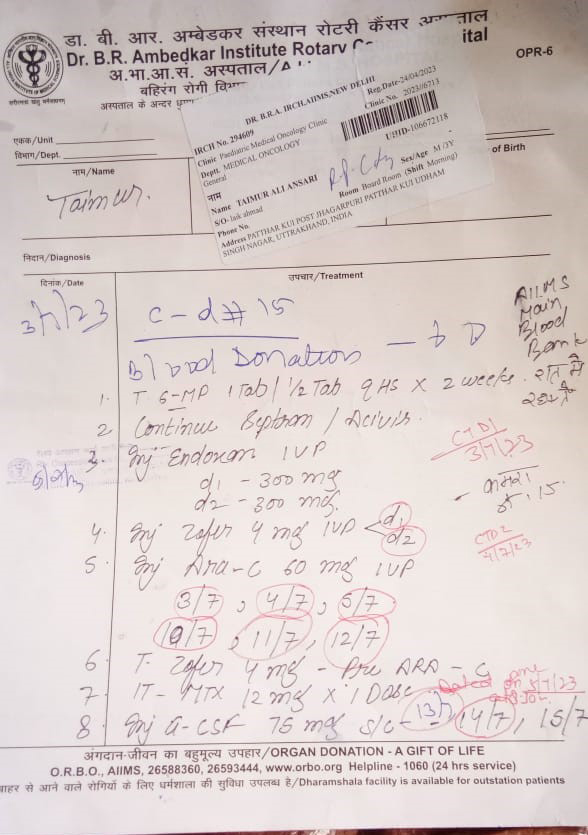 डा. बी. आर. अम्बेडकर संस्थान रोटरी कैंसर अस्पताल
Dr. B.R. Ambedkar Institute Rotary
ital
OPR-6
अ.भा.आ.स. अस्पताल/
बहिरंग रोगी
अस्पताल के अन्दर
DR. B.R.A. IRCH,AIIMS,NEW DELHI
IRCH No. 294609
Reg.Date-24/04/2023
Clinic Paediatric Medical Oncology Clinic
Clinic No. 2023/6713
Deptt. MEDICAL ONCOLOGY
General
UHID-106672118
नाम
Name TAIMUR ALI ANSARI
Sex/Age M /3Y
S/O- laik ahmad
Phone No.
Room Board Room (Shift Morning)
Address PATTHAR KUI POST JHAGARPURI PATTHAR KUI UDHAM
SINGH NAGAR, UTTRAKHAND, INDIA
एकक/Unit
विभाग/Dept.
नाम/Name
of Birth
Taimur.
निदान/Diagnosis
दिनांक/Date
उपचार/Treatment
3/7/23
C-d# 15
AIIMS
Main
Blood
Bank
Blood Donation
1. T. 6-MP 1 Tab / 1/2 Tab qHS x 2 weeks.
2 Continue Septran / Acivir.
CTD1
3/7/23
3. Inj Endoxan IVP
d1 - 300 mg
d2 - 300 mg.
कमरा
नं. 15.
4. Inj Zofer 4 mg IVP < d1
d2
CTD2
4/7/23
5. Inj Ara-C 60 mg IVP
3/7, 4/7, 5/7
10/7, 11/7, 12/7
6. T. Zofer 4 mg - Pre ARA-C
7 IT-MTX 12 mg x 1 Dose
8 Inj G-CSF 75 mg S/C - 13/7 14/7, 15/7
अंगदान-जीवन का बहुमूल्य उपहार/ORGAN DONATION - A GIFT OF LIFE
O.R.B.O., AIIMS, 26588360, 26593444, www.orbo.org Helpline - 1060 (24 hrs service)
बाहर से आने वाले रोगियों के लिए धर्मशाला की सुविधा उपलब्ध है/Dharamshala facility is available for outstation patients